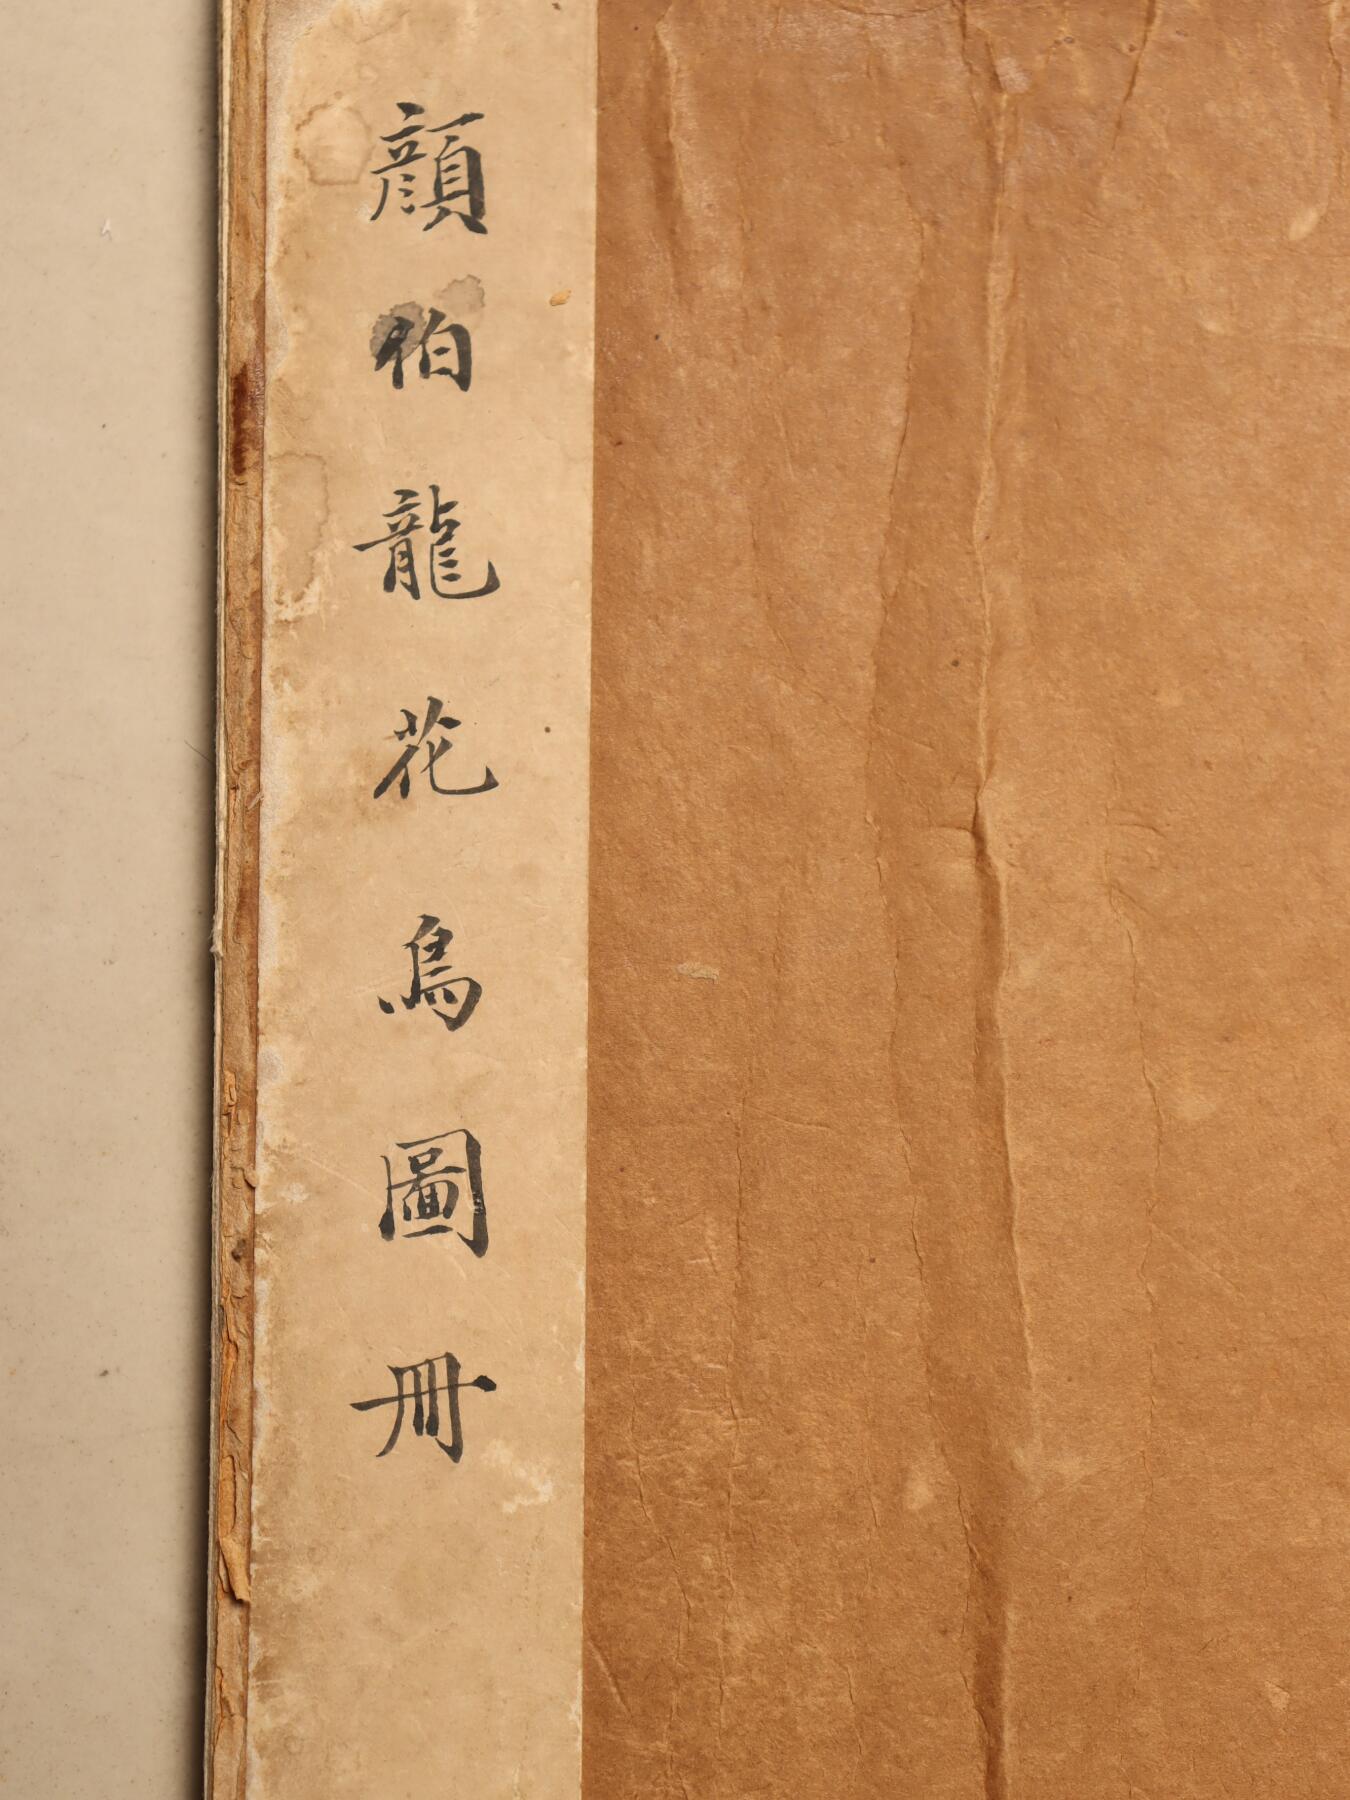 顔伯龍花鳥圖冊